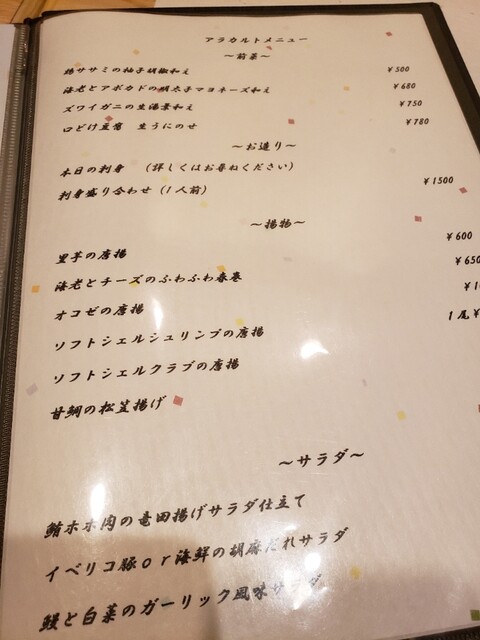 アラカルトメニュー
～前菜～
鶏ササミの柚子胡椒和え ￥500
海老とアボカドの明太子マヨネーズ和え ￥680
ズワイガニの生湯葉和え ￥750
口どけ豆腐 生うにのせ ￥780
～お造り～
本日の刺身 （詳しくはお尋ねください）
刺身盛り合わせ（1人前） ￥1500
～揚物～
里芋の唐揚 ￥600
海老とチーズのふわふわ春巻 ￥650
オコゼの唐揚 ￥1
ソフトシェルシュリンプの唐揚 1尾￥
ソフトシェルクラブの唐揚
甘鯛の松笠揚げ
～サラダ～
鮪ホホ肉の竜田揚げサラダ仕立て
イベリコ豚or海鮮の胡麻だれサラダ
鰻と白菜のガーリック風味サラダ